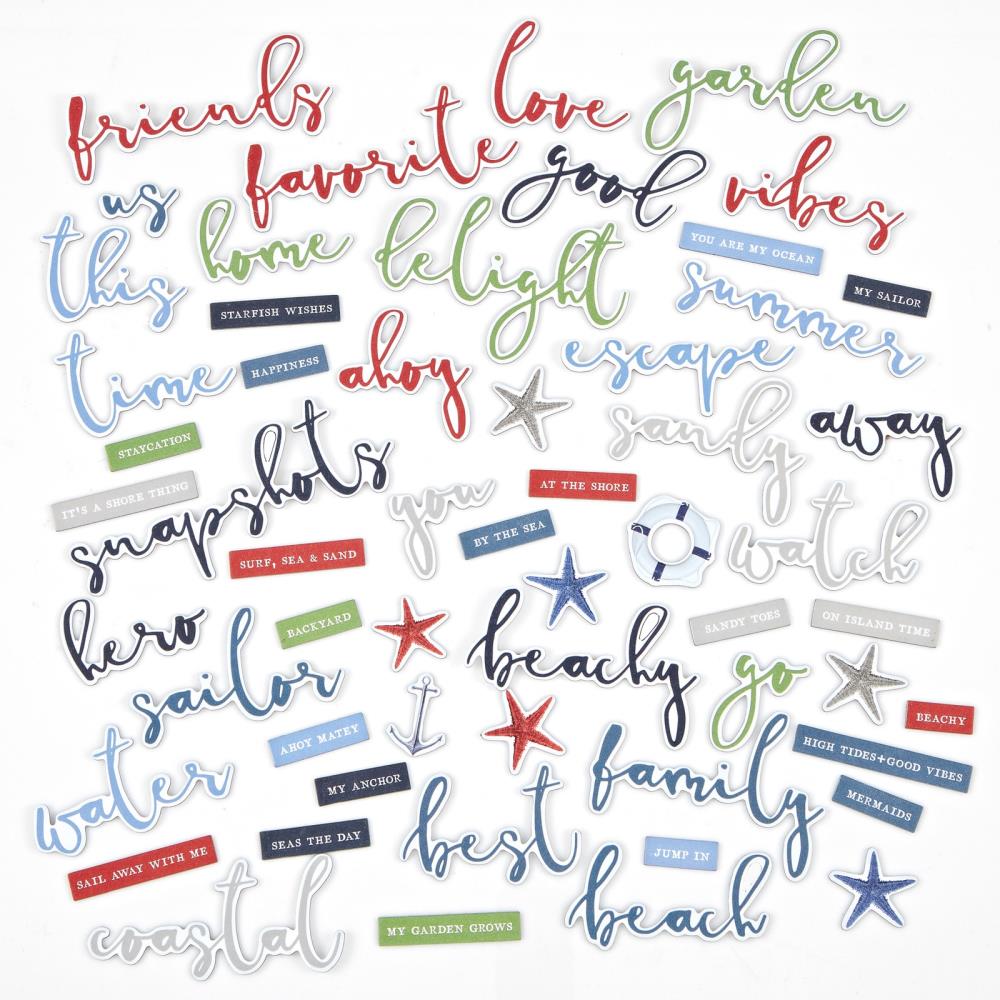 friends
love
garden
favorite
good
vibes
us
this
home
delight
YOU ARE MY OCEAN
MY SAILOR
STARFISH WISHES
summer
time
HAPPINESS
ahoy
escape
sandy
away
STAYCATION
snapshots
IT'S A SHORE THING
you
AT THE SHORE
BY THE SEA
watch
SURF, SEA & SAND
hero
BACKYARD
beachy
SANDY TOES
ON ISLAND TIME
sailor
go
BEACHY
AHOY MATEY
water
MY ANCHOR
family
HIGH TIDES+GOOD VIBES
MERMAIDS
best
SEAS THE DAY
SAIL AWAY WITH ME
JUMP IN
beach
coastal
MY GARDEN GROWS